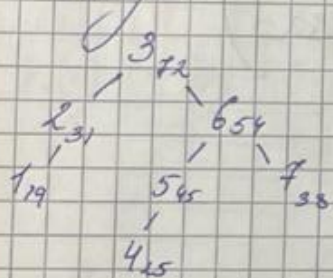 3 72
2 31 6 54
1 19 5 45 7 38
4 25